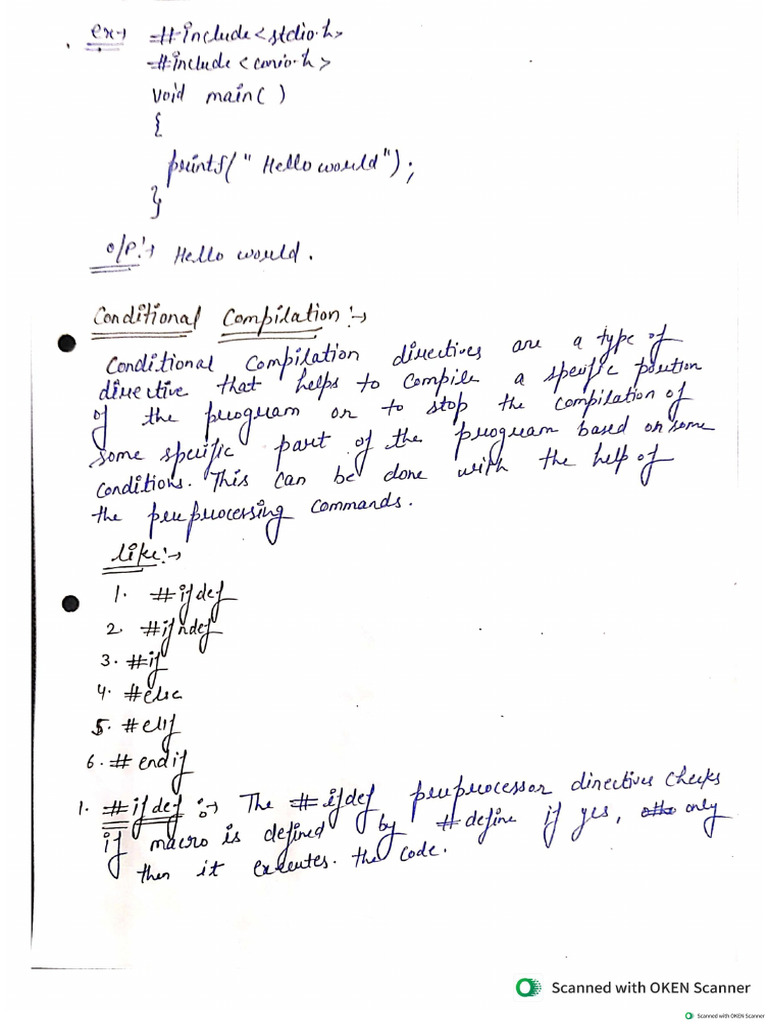 ex→ #include<stdio.h>
#include<conio.h>
void main( )
{
printf(" Hello world");
}
O/P:→ Hello world.
Conditional Compilation:→
Conditional Compilation directives are a type of
directive that helps to compile a specific position
of the program or to stop the compilation of
some specific part of the program based on some
conditions. This can be done with the help of
the preprocessing commands.
like:→
1. #ifdef
2. #ifndef
3. #if
4. #else
5. #elif
6. #endif
1. #ifdef :→ The #ifdef preprocessor directives checks
if macro is defined by #define if yes, only
then it executes. the code.
Scanned with OKEN Scanner
Scanned with OKEN Scanner